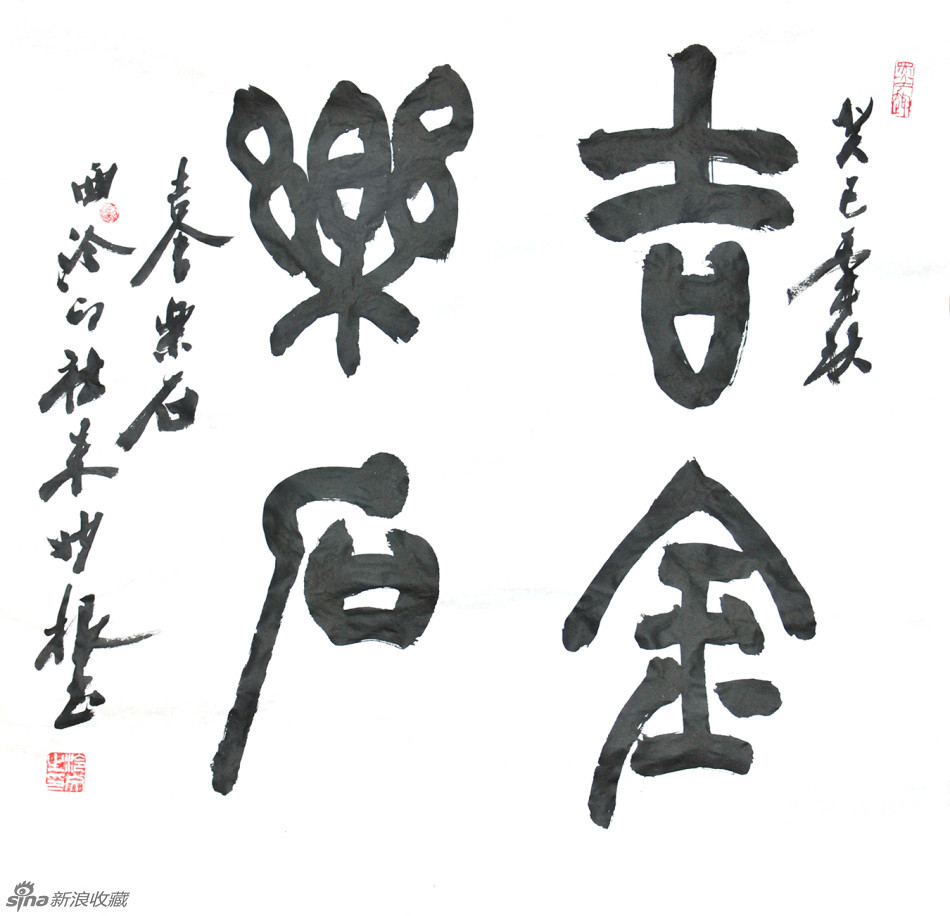 癸巳年秋
吉金
樂石
吉金樂石
西泠印社朱妙根書
sina新浪收藏